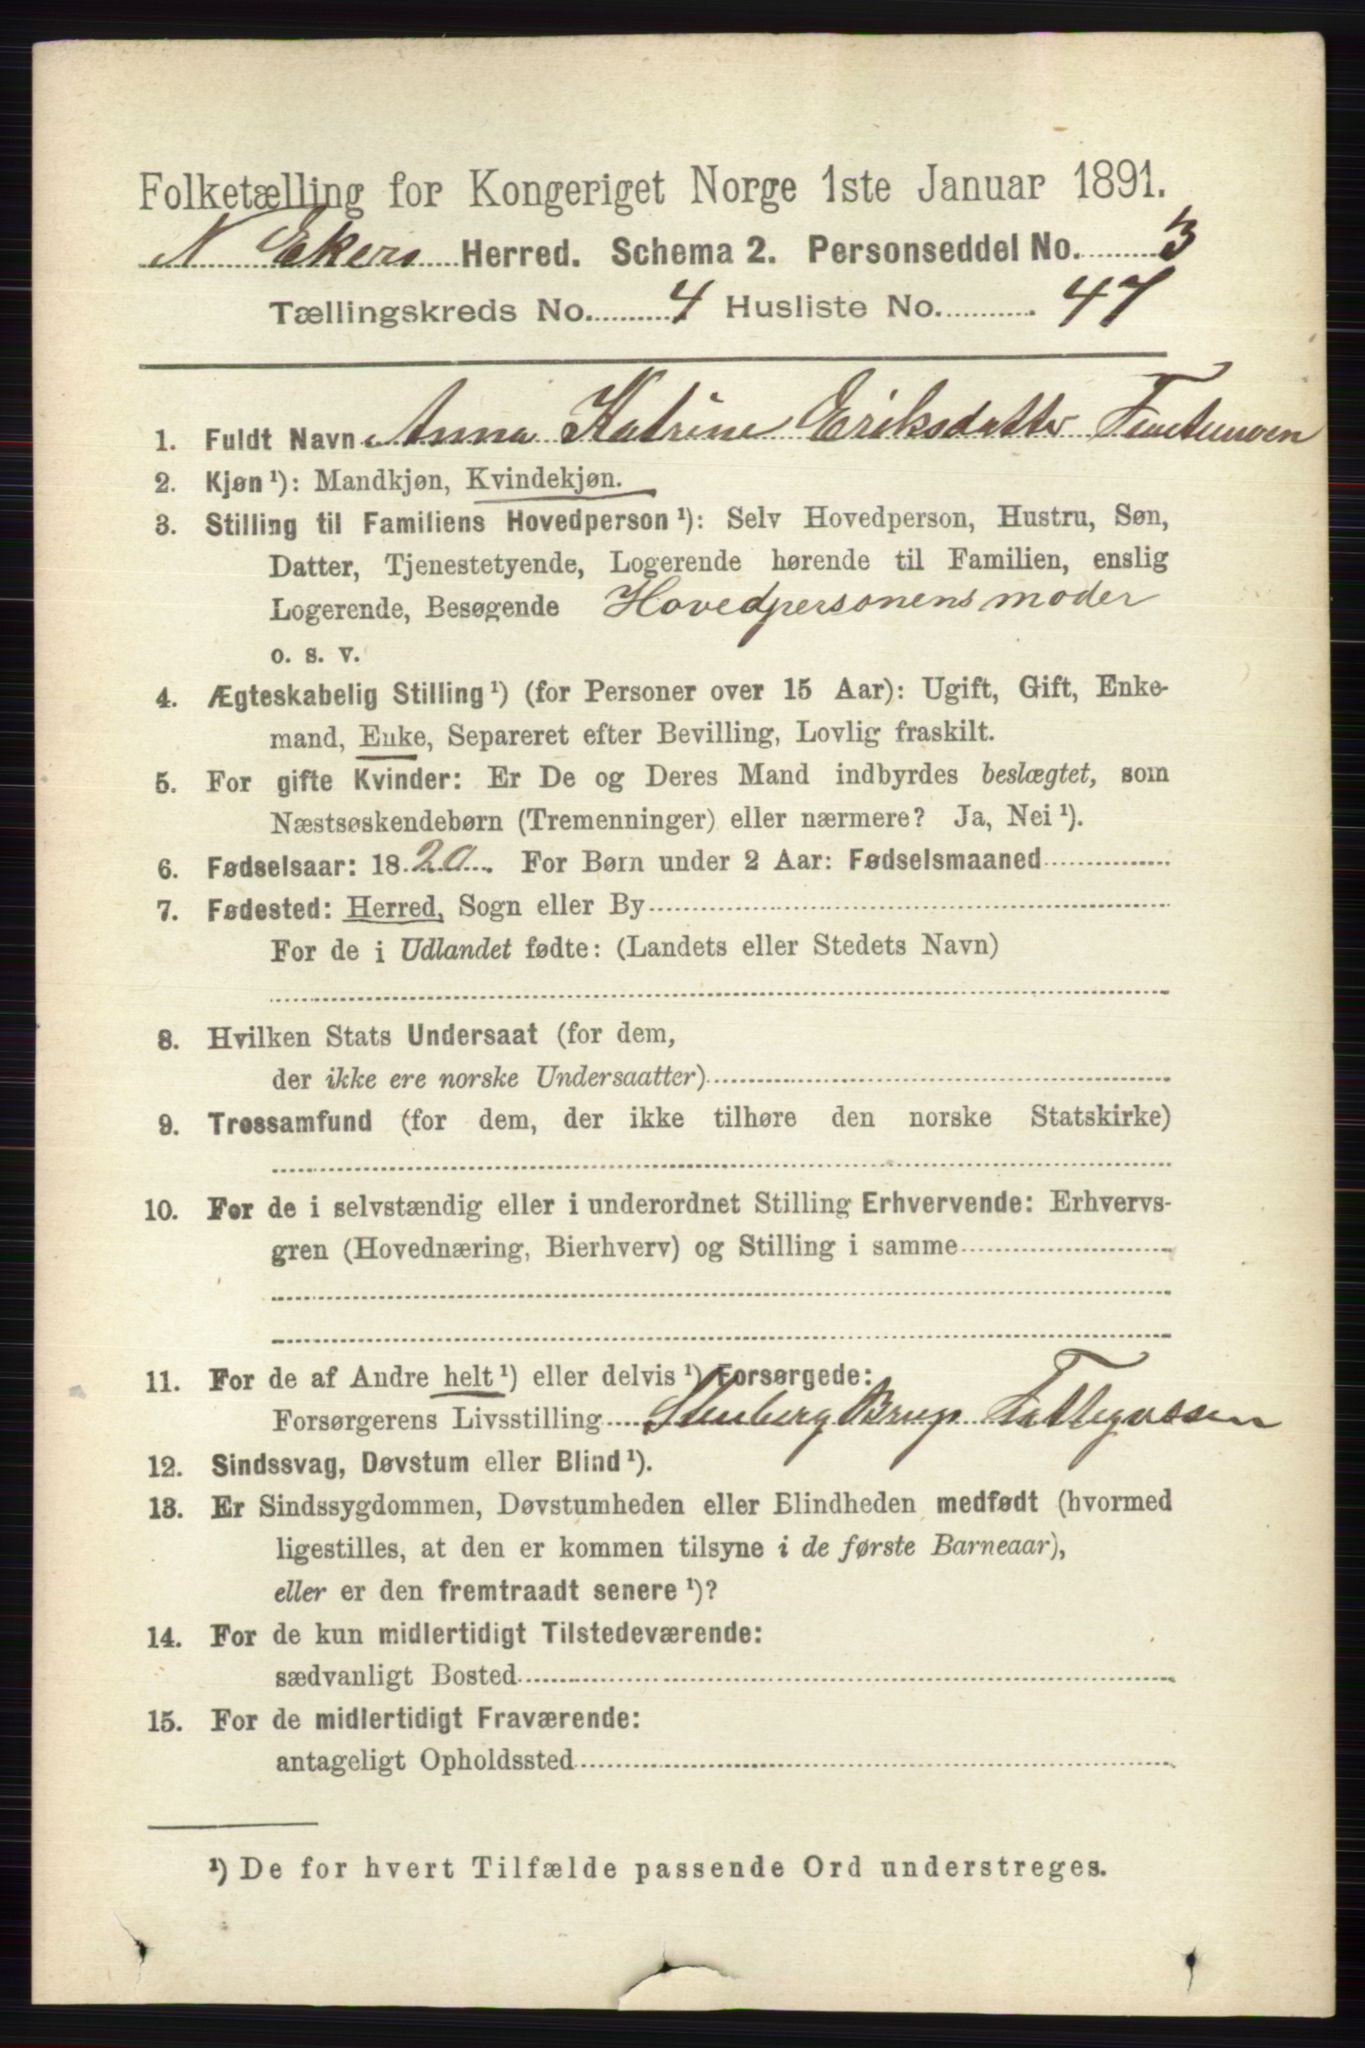 Folketælling for Kongeriget Norge 1ste Januar 1891.
N Ekers Herred. Schema 2. Personseddel No. 3
Tællingskreds No. 4 Husliste No. 47
1. Fuldt Navn Anna Katrine Eriksdatter
2. Kjøn¹): Mandkjøn, Kvindekjøn.
3. Stilling til Familiens Hovedperson¹): Selv Hovedperson, Hustru, Søn,
Datter, Tjenestetyende, Logerende hørende til Familien, enslig
Logerende, Besøgende Hovedpersonens moder
o. s. v.
4. Ægteskabelig Stilling¹) (for Personer over 15 Aar): Ugift, Gift, Enke-
mand, Enke, Separeret efter Bevilling, Lovlig fraskilt.
5. For gifte Kvinder: Er De og Deres Mand indbyrdes beslægtet, som
Næstsøskendebørn (Tremenninger) eller nærmere? Ja, Nei¹).
6. Fødselsaar: 1820. For Børn under 2 Aar: Fødselsmaaned
7. Fødested: Herred, Sogn eller By
For de i Udlandet fødte: (Landets eller Stedets Navn)
8. Hvilken Stats Undersaat (for dem,
der ikke ere norske Undersaatter)
9. Trossamfund (for dem, der ikke tilhøre den norske Statskirke)
10. For de i selvstændig eller i underordnet Stilling Erhvervende: Erhvervs-
gren (Hovednæring, Bierhverv) og Stilling i samme
11. For de af Andre helt¹) eller delvis¹) Forsørgede:
Forsørgerens Livsstilling
12. Sindssvag, Døvstum eller Blind¹).
13. Er Sindssygdommen, Døvstumheden eller Blindheden medfødt (hvormed
ligestilles, at den er kommen tilsyne i de første Barneaar),
eller er den fremtraadt senere¹)?
14. For de kun midlertidigt Tilstedeværende:
sædvanligt Bosted
15. For de midlertidigt Fraværende:
antageligt Opholdssted
¹) De for hvert Tilfælde passende Ord understreges.